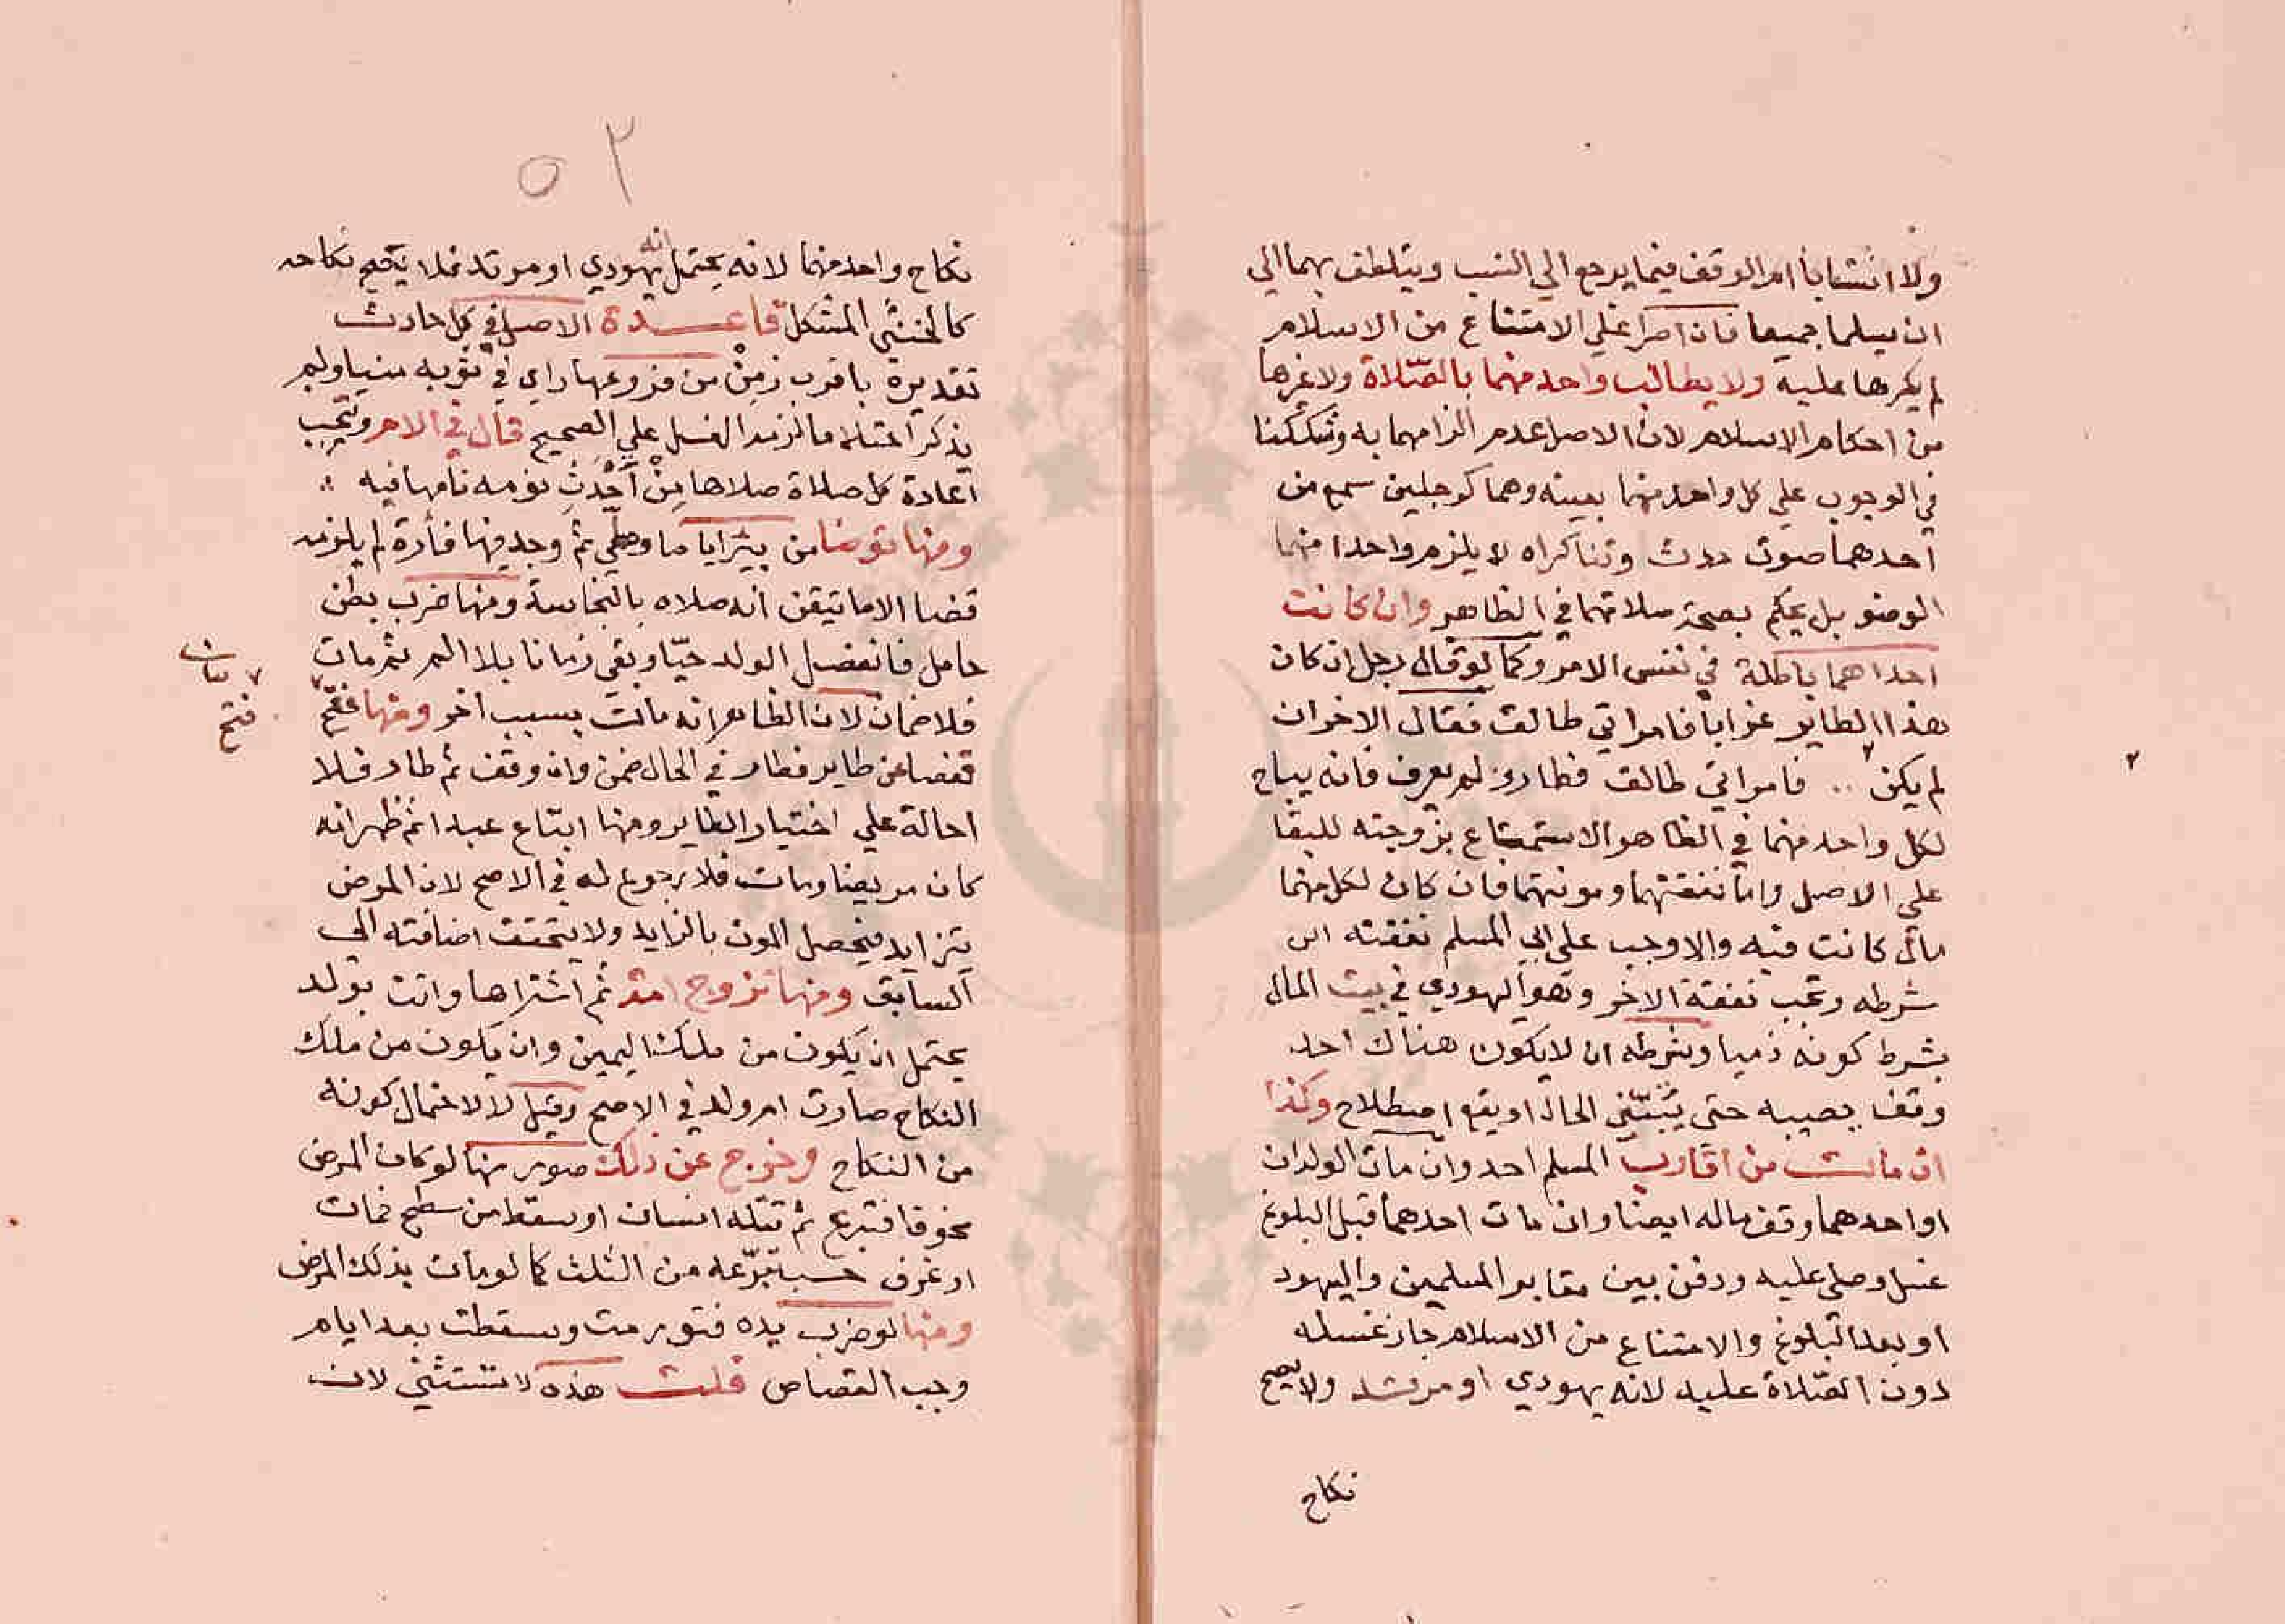 ولا انتسابا امر الوقف فيما يرجع الي النسب ويتلطف بهما الي
ان يسلما جميعا فان اصرا علي الامتناع من الاسلام
لم يكرها عليه ولا يطالب واحد منهما بالصلاة ولا غيرها
من احكام الاسلام لان الاصل عدم الزامهما به وشككنا
في الوجوب علي كل واحد منهما بعينه وهما كرجلين سمع من
احدهما صوت حدث وتناكراه لا يلزم واحدا منهما
الوضو بل يحكم بصحة صلاتهما في الظاهر وان كانت
احداهما باطلة في نفس الامر وكما لو قال رجل ان كان
هذا الطاير غرابا فامراتي طالق فقال الاخر ان
لم يكن فامراتي طالق فطار ولم يعرف فانه يباح
لكل واحد منهما في الظاهر الاستمتاع بزوجته للبقا
علي الاصل واما نفقتهما ومونتهما فان كان لكل منهما
مال كانت فيه والا وجب علي ابي المسلم نفقته
شرطه وتجب نفقة الاخر وهو اليهودي في بيت المال
بشرط كونه ذميا وبشرطه ان لا يكون هناك احد
وقف نصيبه حتى يتبين الحال او يقع اصطلاح وكذا
ان مات من اقارب المسلم احد وان مات الولدان
او احدهما وقف ماله ايضا وان مات احدهما قبل البلوغ
غسل وصلي عليه ودفن بين مقابر المسلمين واليهود
او بعد البلوغ والامتناع من الاسلام جاز غسله
دون الصلاة عليه لانه يهودي او مرتد ولا يصح
نكاح
٥٢
نكاح واحد منهما لانه يحتمل انه يهودي او مرتد فلا يصح نكاحه
كالخنثي المشكل قاعدة الاصل في كل حادث
تقديره باقرب زمن من فروعها راي في ثوبه منيا ولم
يذكر احتلاما لزمه الغسل علي الصحيح قال في الام وتجب
اعادة كل صلاة صلاها من أحدث نومه نامها فيه
ومنها توضا من بئر اياما وصلي ثم وجد فيها فأرة لم يلزمه
قضا الا ما تيقن انه صلاه بالنجاسة ومنها ضرب بطن
حامل فانفصل الولد حيا وبقي زمانا بلا الم ثم مات
فلا ضمان لان الظاهر انه مات بسبب اخر ومنها فتح
فتح
قفصا عن طاير فطار في الحال ضمن وان وقف ثم طار فلا
احالة علي اختيار الطاير ومنها ابتاع عبدا ثم ظهر انه
كان مريضا ومات فلا رجوع له في الاصح لان المرض
يتزايد فيحصل الموت بالزايد ولا يتحقق اضافته الي
السابق ومنها تزوج امة ثم اشتراها واتت بولد
يحتمل ان يكون من ملك اليمين وان يكون من ملك
النكاح صارت ام ولد في الاصح وقيل لا لاحتمال كونه
من النكاح وخرج عن ذلك صور منها لو كان المرض
مخوفا فتبرع ثم قتله انسان او سقط من سطح فمات
او غرق حسب تبرعه من الثلث كما لو مات بذلك المرض
ومنها لو ضرب يده فتورمت وسقطت بعد ايام
وجب القصاص قلت هذه لا تستثني لان